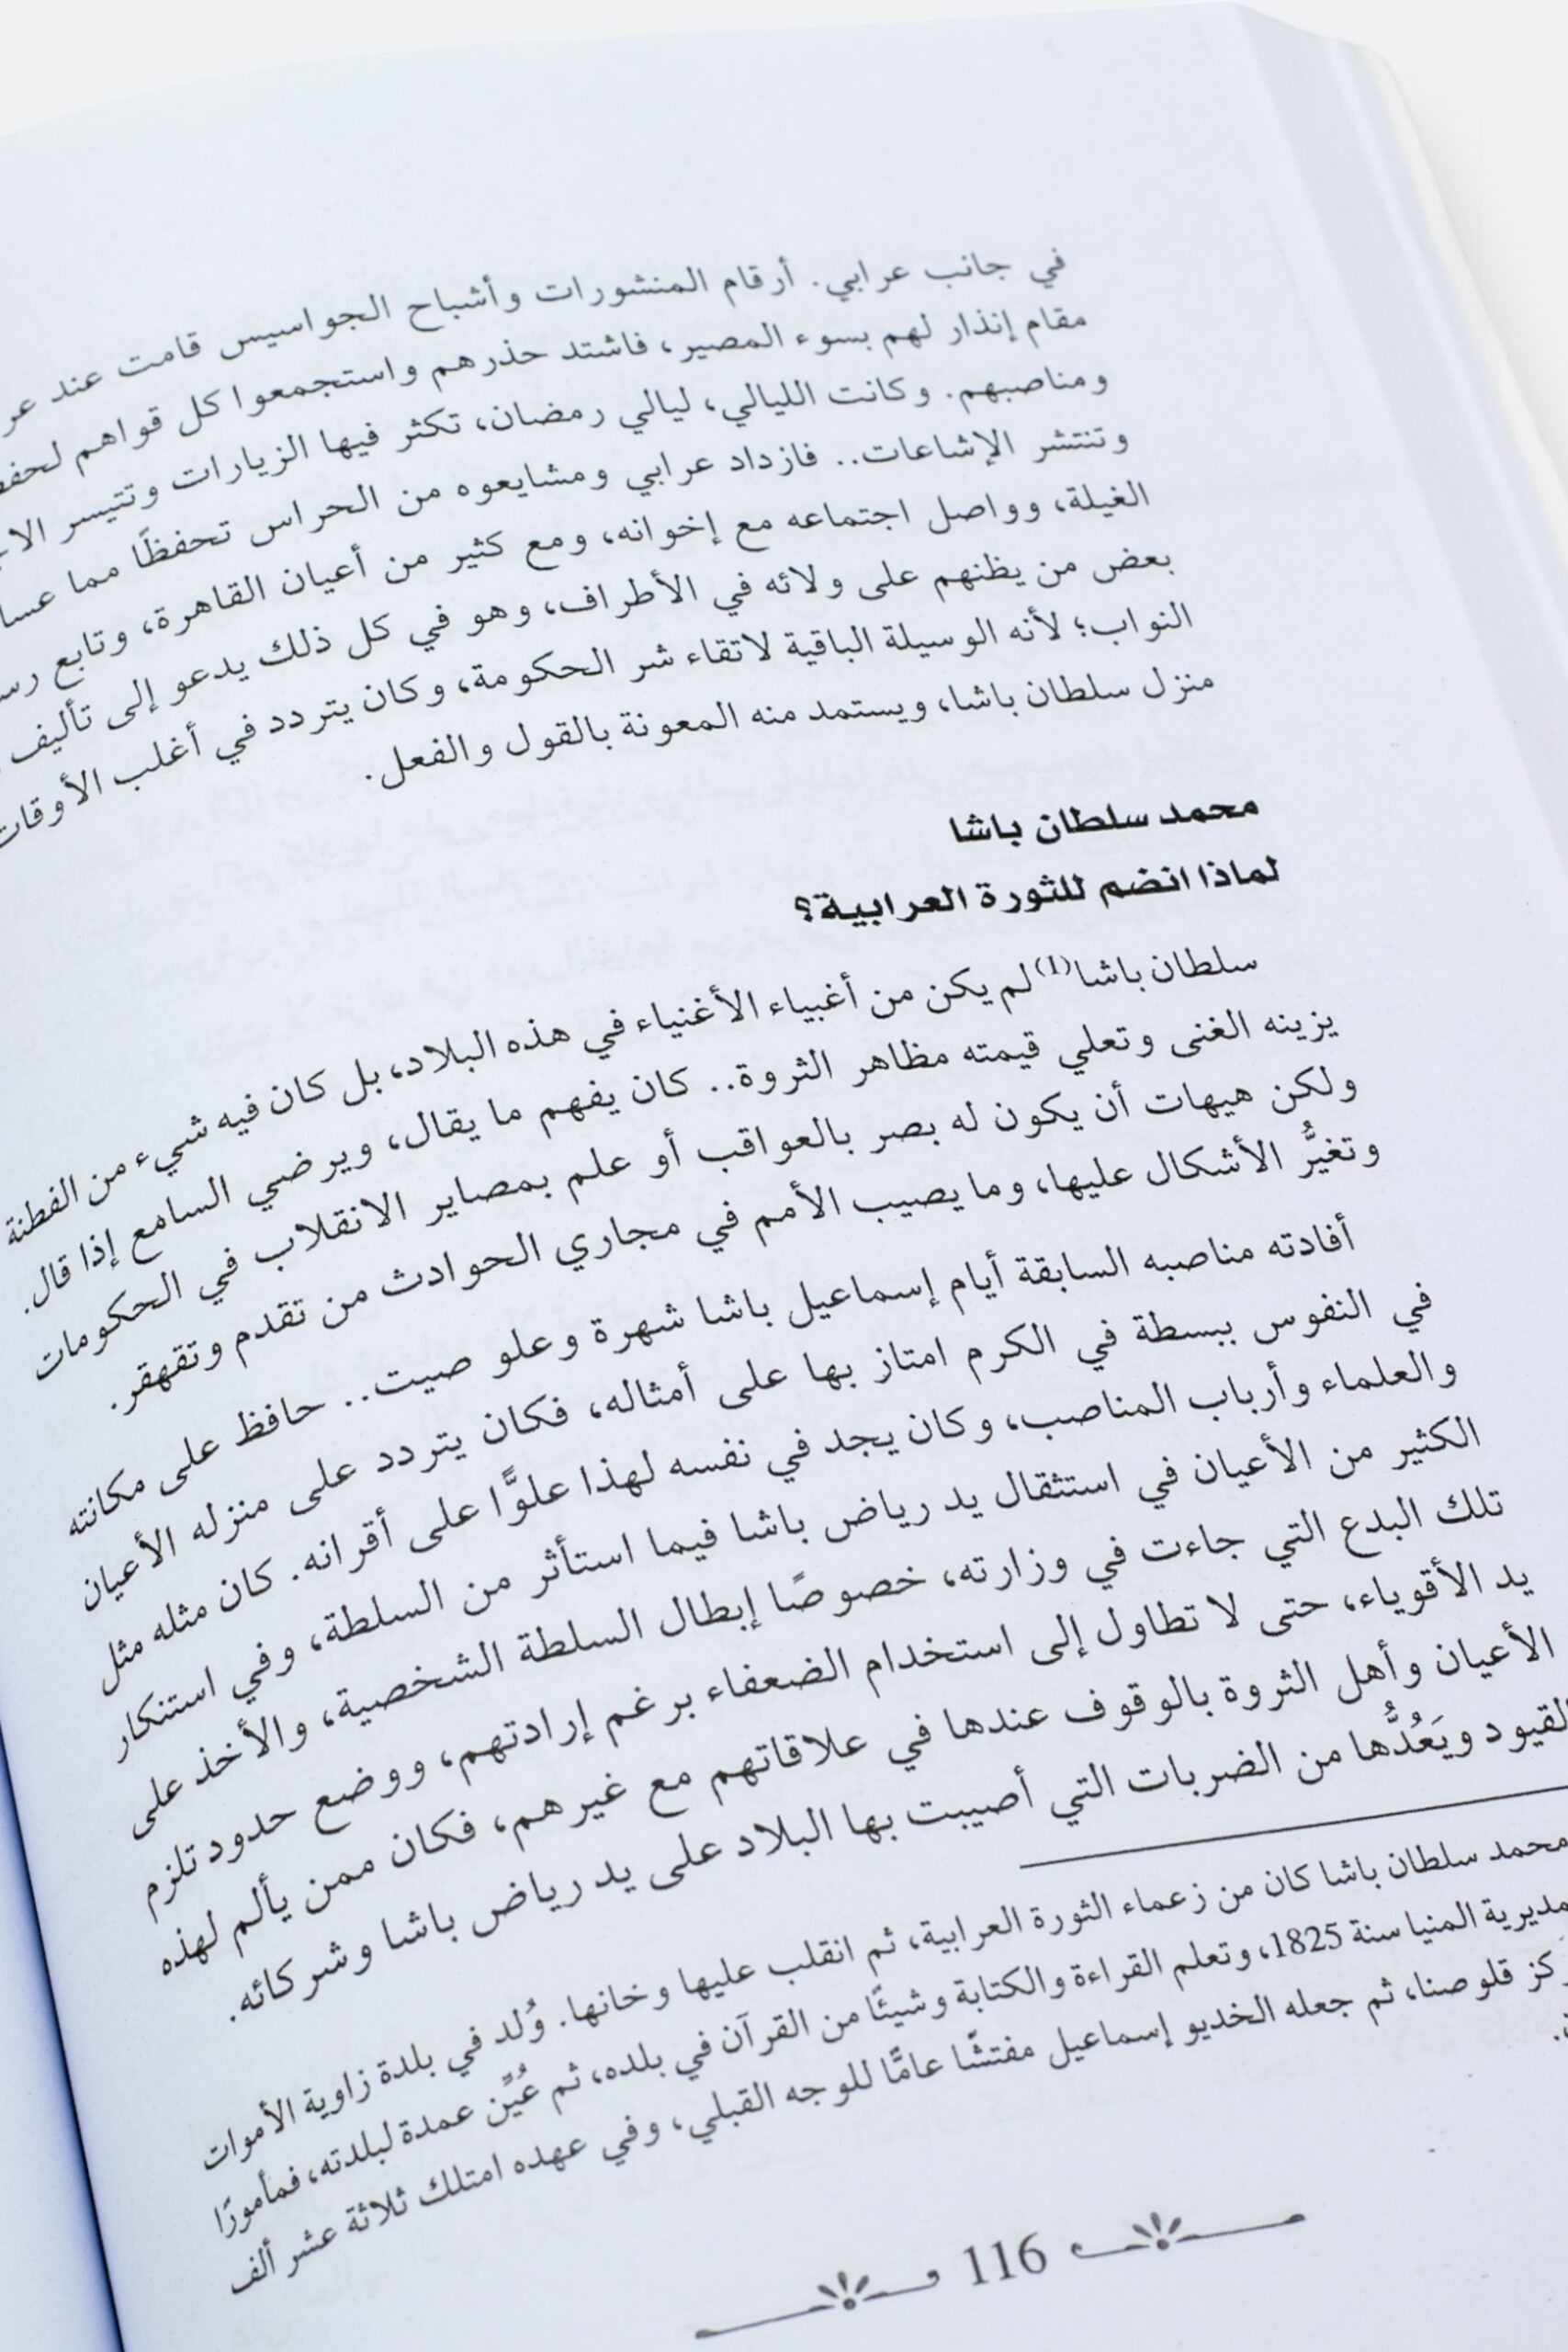 في جانب عرابي. أرقام المنشورات وأشباح الجواسيس قامت عند
مقام إنذار لهم بسوء المصير، فاشتد حذرهم واستجمعوا كل قواهم
ومناصبهم. وكانت الليالي، ليالي رمضان، تكثر فيها الزيارات وتتيسر
وتنتشر الإشاعات.. فازداد عرابي ومشايعوه من الحراس تحفظًا مما
الغيلة، وواصل اجتماعه مع إخوانه، ومع كثير من أعيان القاهرة، وتابع
بعض من يظنهم على ولائه في الأطراف، وهو في كل ذلك يدعو إلى تأليف
النواب؛ لأنه الوسيلة الباقية لاتقاء شر الحكومة، وكان يتردد في أغلب الأوقات
منزل سلطان باشا، ويستمد منه المعونة بالقول والفعل.
محمد سلطان باشا
لماذا انضم للثورة العرابية؟
سلطان باشا(1) لم يكن من أغبياء الأغنياء في هذه البلاد، بل كان فيه شيء من الفطنة
يزينه الغنى وتعلي قيمته مظاهر الثروة.. كان يفهم ما يقال، ويرضي السامع إذا قال.
ولكن هيهات أن يكون له بصر بالعواقب أو علم بمصاير الانقلاب في الحكومات
وتغيُّر الأشكال عليها، وما يصيب الأمم في مجاري الحوادث من تقدم وتقهقر.
أفادته مناصبه السابقة أيام إسماعيل باشا شهرة وعلو صيت.. حافظ على مكانته
في النفوس ببسطة في الكرم امتاز بها على أمثاله، فكان يتردد على منزله الأعيان
والعلماء وأرباب المناصب، وكان يجد في نفسه لهذا علوًّا على أقرانه. كان مثله مثل
الكثير من الأعيان في استثقال يد رياض باشا فيما استأثر من السلطة، وفي استنكار
تلك البدع التي جاءت في وزارته، خصوصًا إبطال السلطة الشخصية، والأخذ على
يد الأقوياء، حتى لا تطاول إلى استخدام الضعفاء برغم إرادتهم، ووضع حدود تلزم
الأعيان وأهل الثروة بالوقوف عندها في علاقاتهم مع غيرهم، فكان ممن يألم لهذه
القيود ويَعُدُّها من الضربات التي أصيبت بها البلاد على يد رياض باشا وشركائه.
محمد سلطان باشا كان من زعماء الثورة العرابية، ثم انقلب عليها وخانها. وُلد في بلدة زاوية الأموات
مديرية المنيا سنة 1825، وتعلم القراءة والكتابة وشيئًا من القرآن في بلده، ثم عُيِّن عمدة لبلدته، فمأمورًا
قلوصنا، ثم جعله الخديو إسماعيل مفتشًا عامًّا للوجه القبلي، وفي عهده امتلك ثلاثة عشر ألف
116